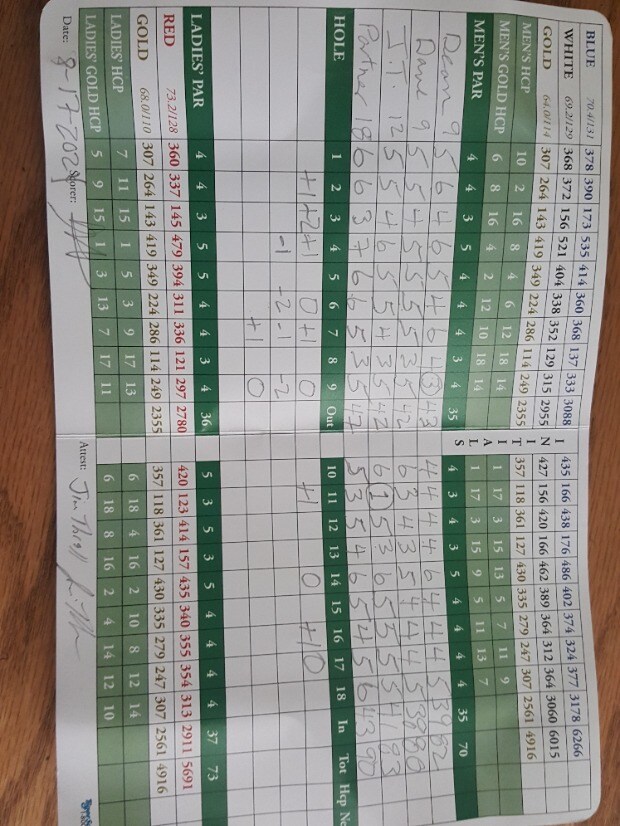 BLUE 70.4/131 378 390 173 535 414 360 368 137 333 3088 I 435 166 438 176 486 402 374 324 377 3178 6266
WHITE 69.2/129 368 372 156 521 404 338 352 129 315 2955 N 427 156 420 166 462 389 364 312 364 3060 6015
GOLD 64.0/114 307 264 143 419 349 224 286 114 249 2355 I T 357 118 361 127 430 335 279 247 307 2561 4916
MEN'S HCP 10 2 16 8 4 6 12 18 14 I 1 17 3 15 9 5 11 13 7
MEN'S GOLD HCP 6 8 16 4 2 12 10 18 14 A 1 17 3 15 13 5 7 11 9
MEN'S PAR 4 4 3 5 4 4 4 3 4 35 L S 4 3 4 3 5 4 4 4 4 35 70
Dean 9 5 6 4 6 5 4 6 4 3 43 4 4 4 4 6 4 4 4 5 39 82
Dave 9 5 5 4 5 5 5 5 3 5 42 6 3 4 3 5 4 4 4 5 38 80
J.T. 12 5 5 4 6 5 5 4 3 5 42 6 1 5 3 6 5 5 5 5 41 83
Partner 18 6 6 3 7 6 6 5 3 5 47 5 3 5 4 6 5 4 5 6 43 90
HOLE 1 2 3 4 5 6 7 8 9 Out 10 11 12 13 14 15 16 17 18 In Tot Hcp Ne
+1 +2 +1 0 +1 0 +1 0 +1 0
-1 -2 -1 -2
+1 0
LADIES' PAR 4 4 3 5 5 4 4 3 4 36 5 3 5 3 5 4 4 4 4 37 73
RED 73.2/128 360 337 145 479 394 311 336 121 297 2780 420 123 414 157 435 340 355 354 313 2911 5691
GOLD 68.0/110 307 264 143 419 349 224 286 114 249 2355 357 118 361 127 430 335 279 247 307 2561 4916
LADIES' HCP 7 11 15 1 5 3 9 17 13 6 18 4 16 2 10 8 12 14
LADIES' GOLD HCP 5 9 15 1 3 13 7 17 11 6 18 8 16 2 4 14 12 10
Date: 8-17-202 Scorer: Attest: Jim